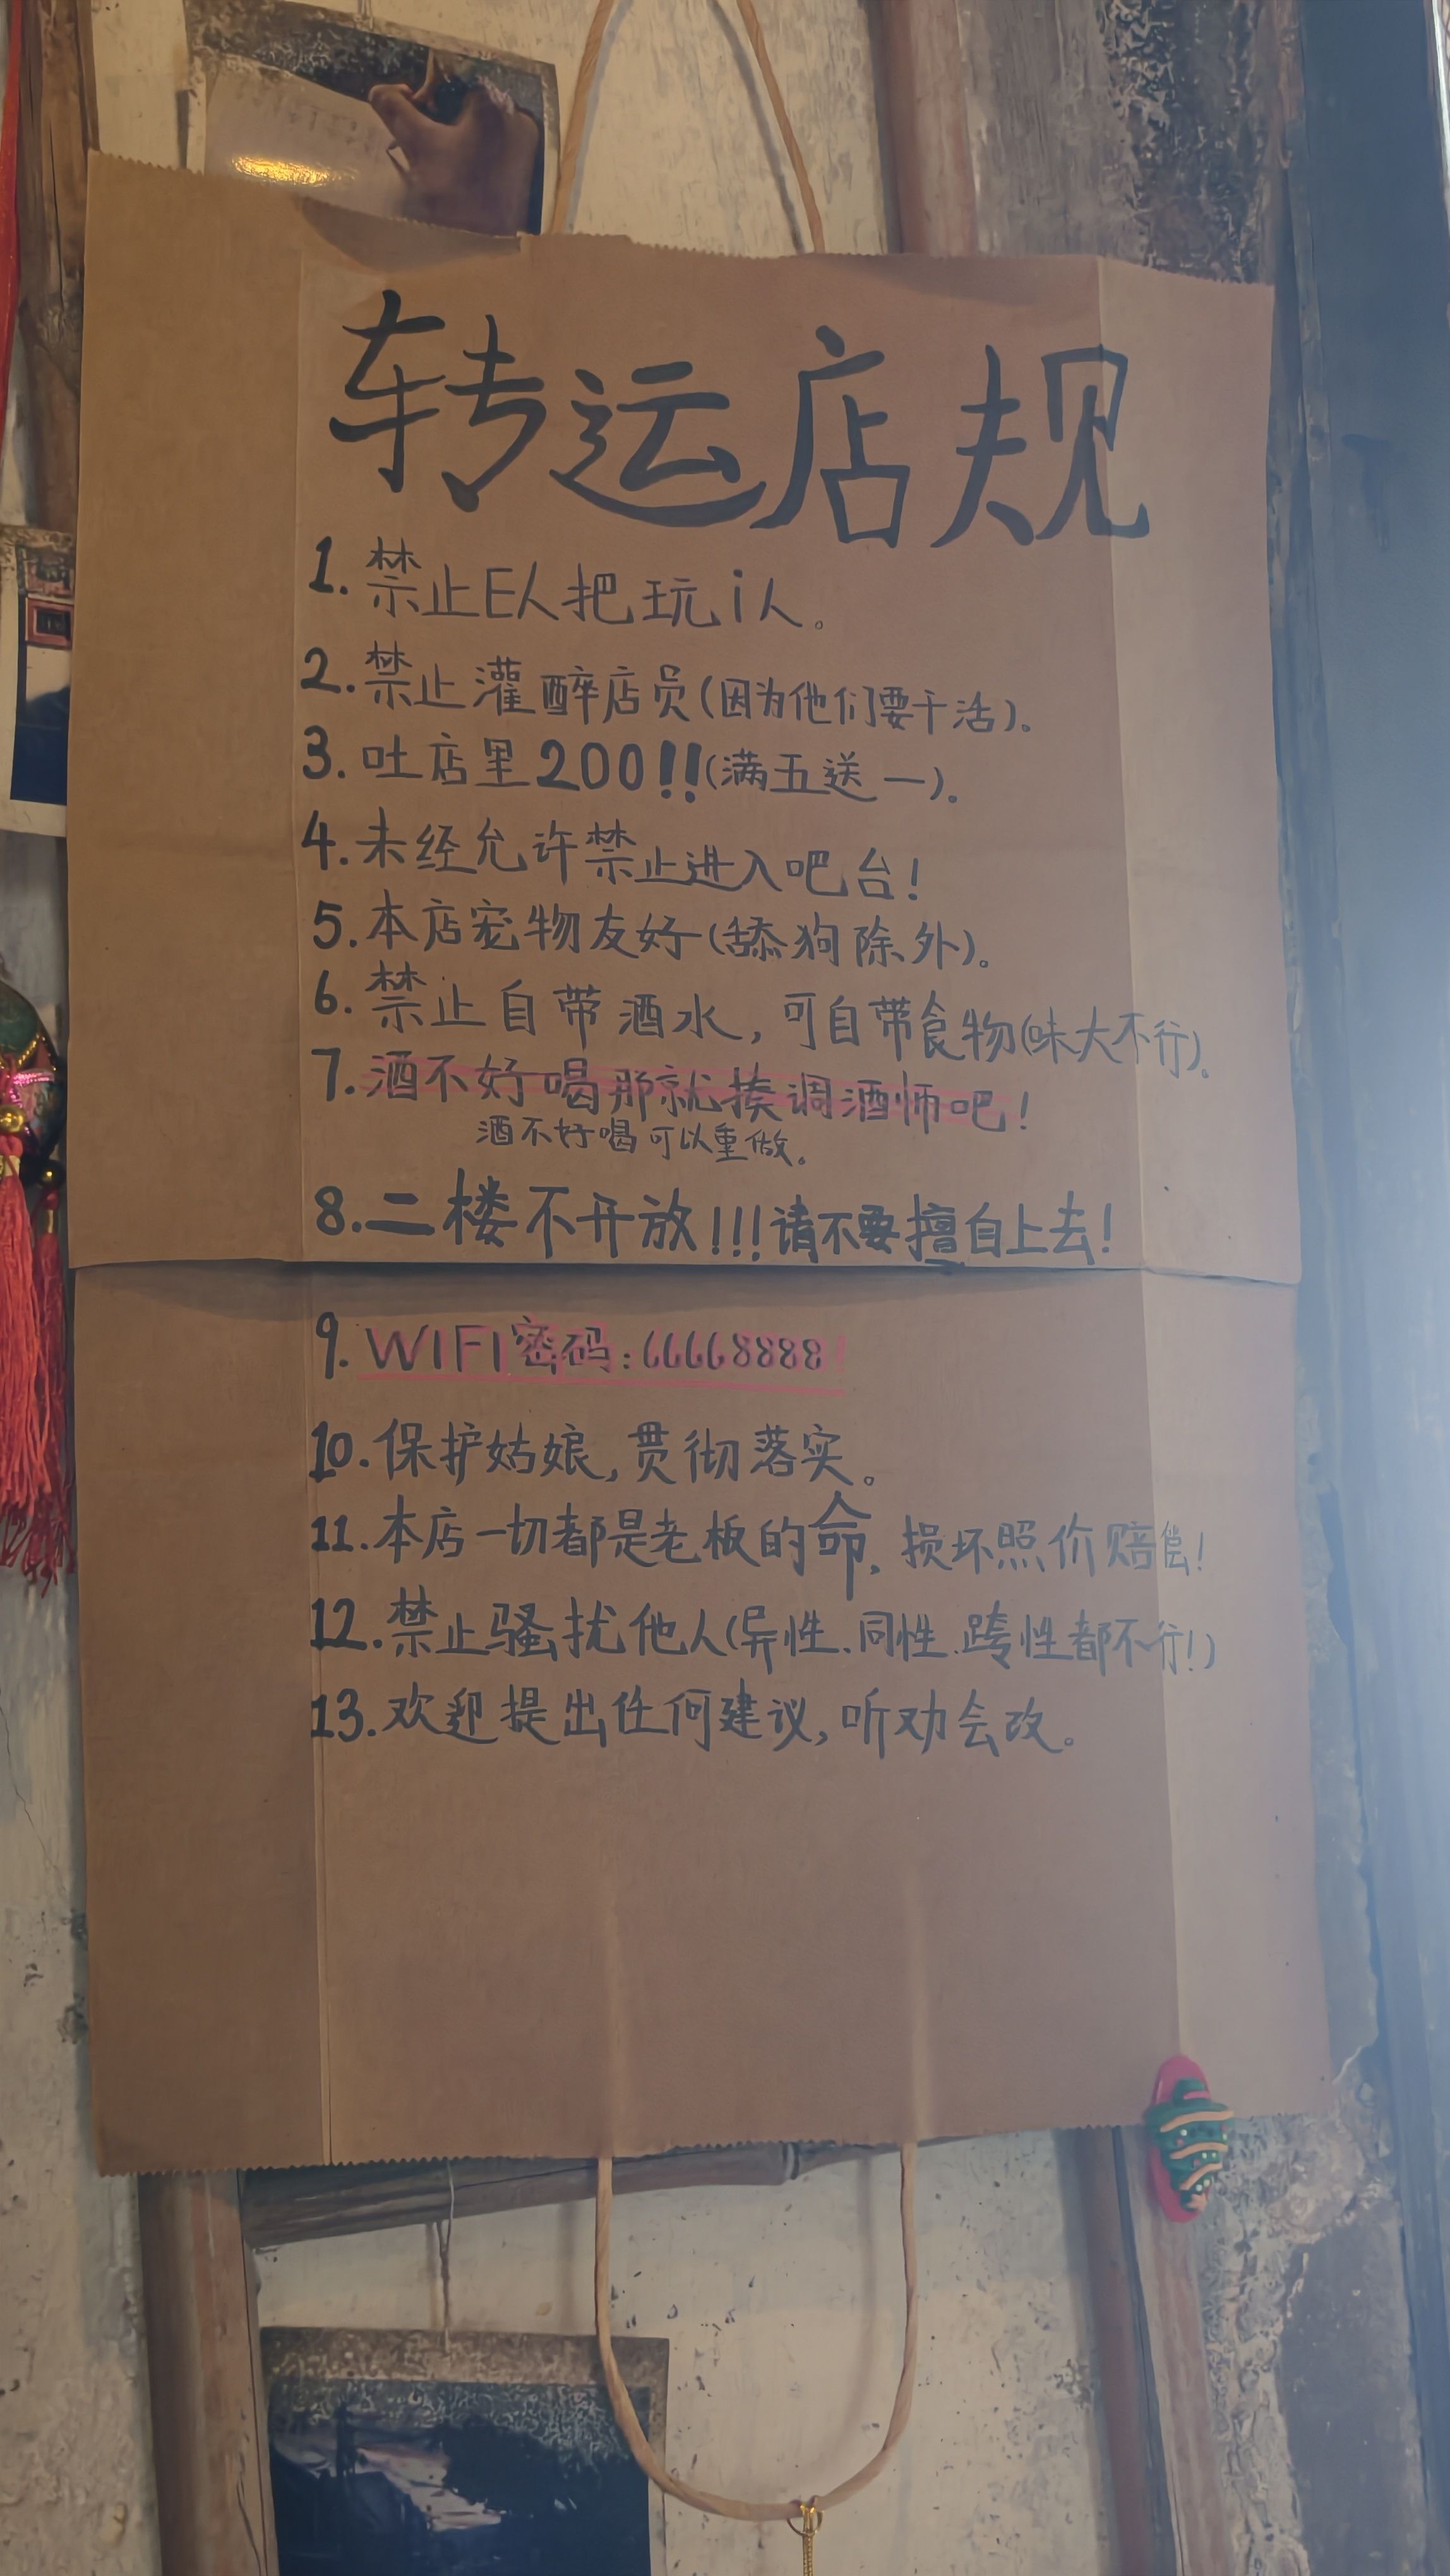 转运店规
1. 禁止E人把玩i人。
2. 禁止灌醉店员(因为他们要干活)。
3. 吐店里200!!(满五送一)。
4. 未经允许禁止进入吧台!
5. 本店宠物友好(舔狗除外)。
6. 禁止自带酒水,可自带食物(味大不行)。
7. 酒不好喝那就揍调酒师吧!
酒不好喝可以重做。
8. 二楼不开放!!!请不要擅自上去!
9. WIFI密码:66668888!
10. 保护姑娘,贯彻落实。
11. 本店一切都是老板的命,损坏照价赔偿!
12. 禁止骚扰他人(异性、同性、跨性都不行!)
13. 欢迎提出任何建议,听劝会改。